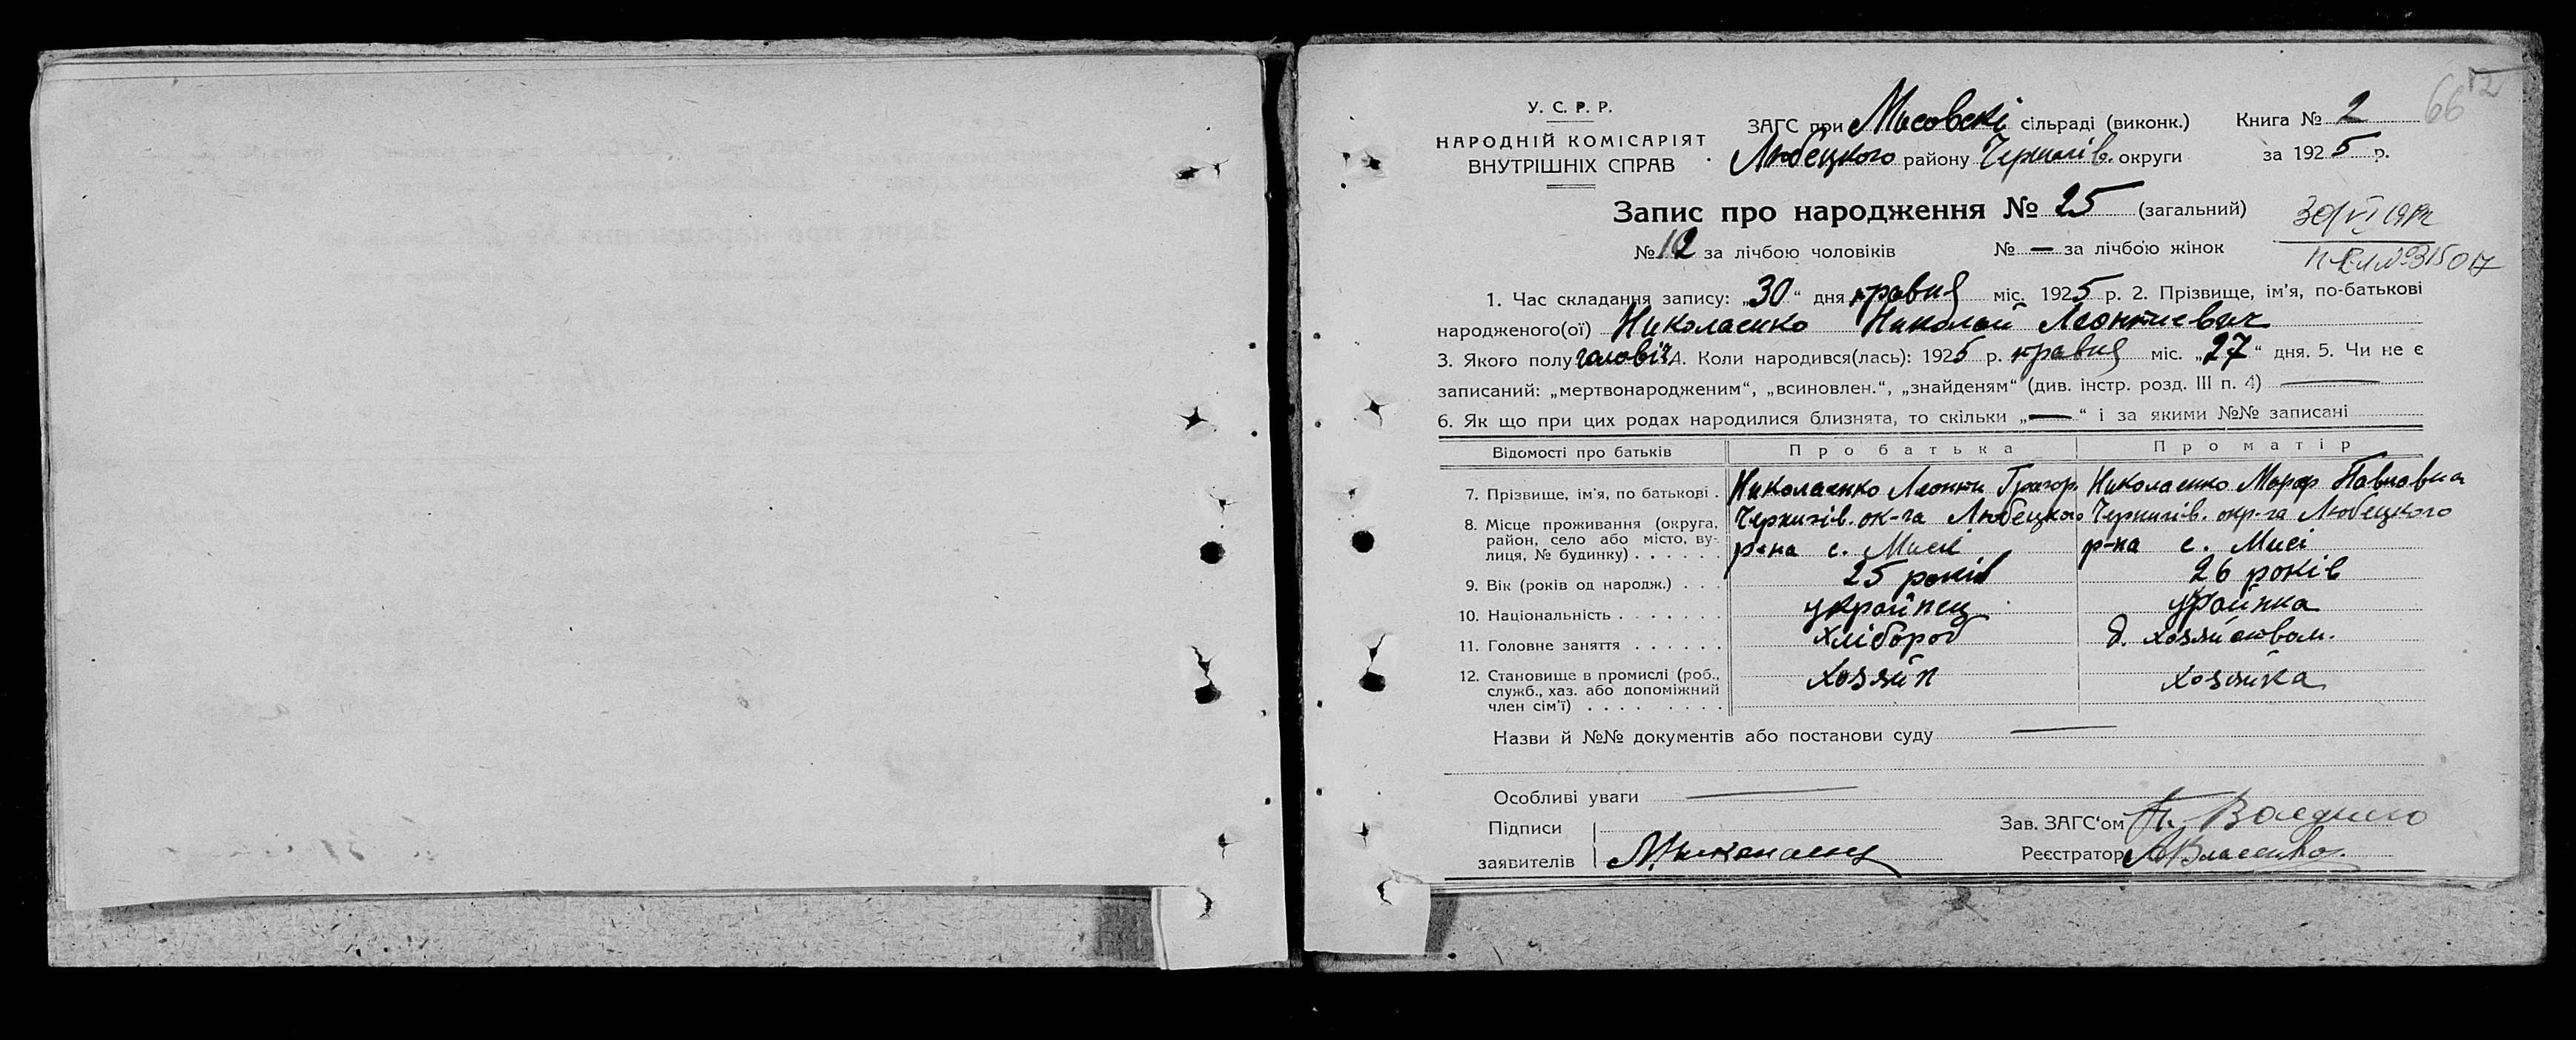 66 12
У. С. Р. Р.
НАРОДНІЙ КОМІСАРІЯТ
ВНУТРІШНІХ СПРАВ
ЗАГС при Мисовскі сільраді (виконк.) Книга № 2
Любецкого району Чернигів. округи за 1925 р.
Запис про народження № 25 (загальний)
№ 12 за лічбою чоловіків № — за лічбою жінок
1. Час складання запису: „30“ дня травня міс. 1925 р. 2. Прізвище, ім'я, по-батькові
народженого(ої) Николаенко Николай Леонтиевич
3. Якого полу чоловіч. 4. Коли народився(лась): 1925 р. травня міс. „27“ дня. 5. Чи не є
записаний: „мертвонародженим“, „всиновлен.“, „знайденям“ (див. інстр. розд. III п. 4) —
6. Як що при цих родах народилися близнята, то скільки „—“ і за якими №№ записані
Відомості про батьків Про батька Про матір
7. Прізвище, ім'я, по батькові . Николаенко Леонти Григор. Николаенко Марф Павловна
8. Місце проживання (округа, район, село або місто, вулиця, № будинку) . . . . . . Чернигів. ок-га Любецкого р-на с. Мисі Чернигів. окр-га Любецкого р-на с. Мисі
9. Вік (років од народж.) . . . 25 років 26 років
10. Національність . . . . . . . українец украінка
11. Головне заняття . . . . . . хлібороб д. хозяйством.
12. Становище в промислі (роб., служб., хаз. або допоміжний член сім'ї) . . . . . . . . хозяін хозяйка
Назви й №№ документів або постанови суду —
Особливі уваги —
Підписи
заявителів
Зав. ЗАГС'ом
Реєстратор